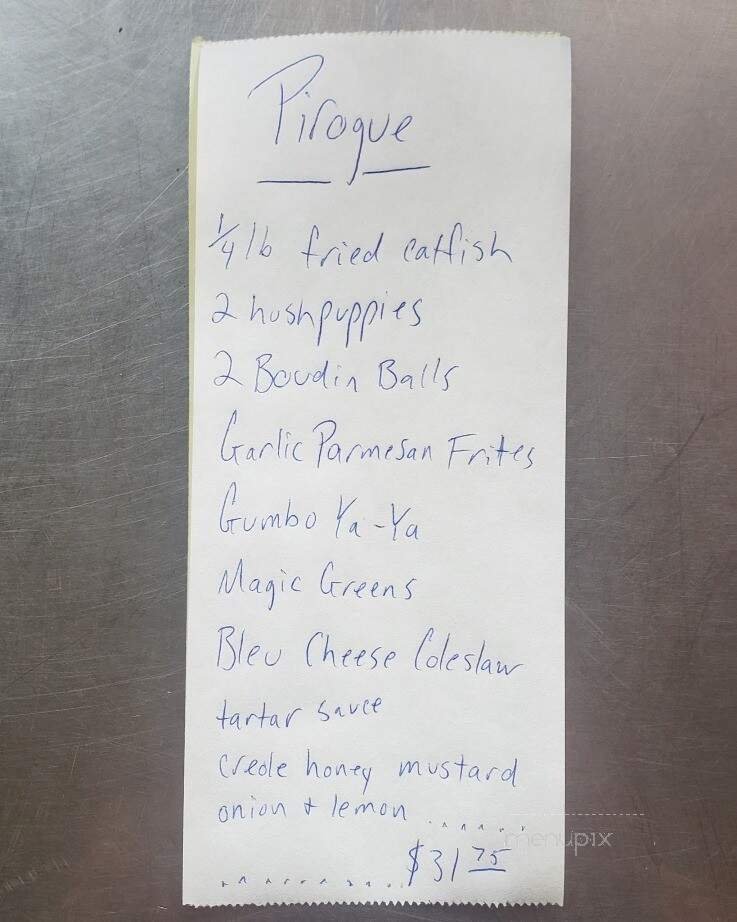 Pirogue
1/4 lb fried catfish
2 hushpuppies
2 Boudin Balls
Garlic Parmesan Frites
Gumbo Ya-Ya
Magic Greens
Bleu Cheese Coleslaw
tartar sauce
creole honey mustard
onion + lemon ......
menupix
.......... $31 75